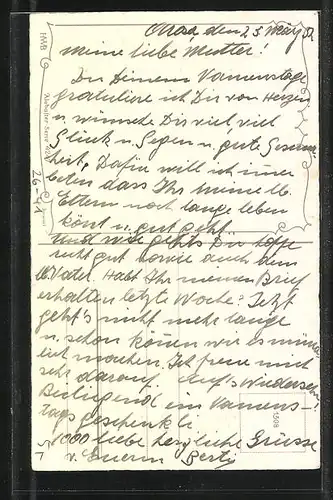 den 23. März
meine liebe Mutter!
Zu Deinem Namenstage
gratuliere ich Dir von Herzen
u. wünsche Dir viel, viel
Glück u. Segen u. gute Gesund-
heit. Dafür will ich immer
beten dass Ihr meine lb.
Eltern noch lange leben
könt u. gut geht.
Und wie gehts Dir hoffe
recht gut sowie auch dem
lb. Vater. Habt Ihr meinen Brief
erhalten letzte Woche? Jetzt
geht's nicht mehr lange
u. schon können wir es münd-
lich machen. Ich freue mich
sehr darauf. Auf's Wiedersehen!
Beiliegend ein Namens-
tags geschenkli.
1000 liebe herzliche Grüsse
v. Euerm Berty
HWB
1508